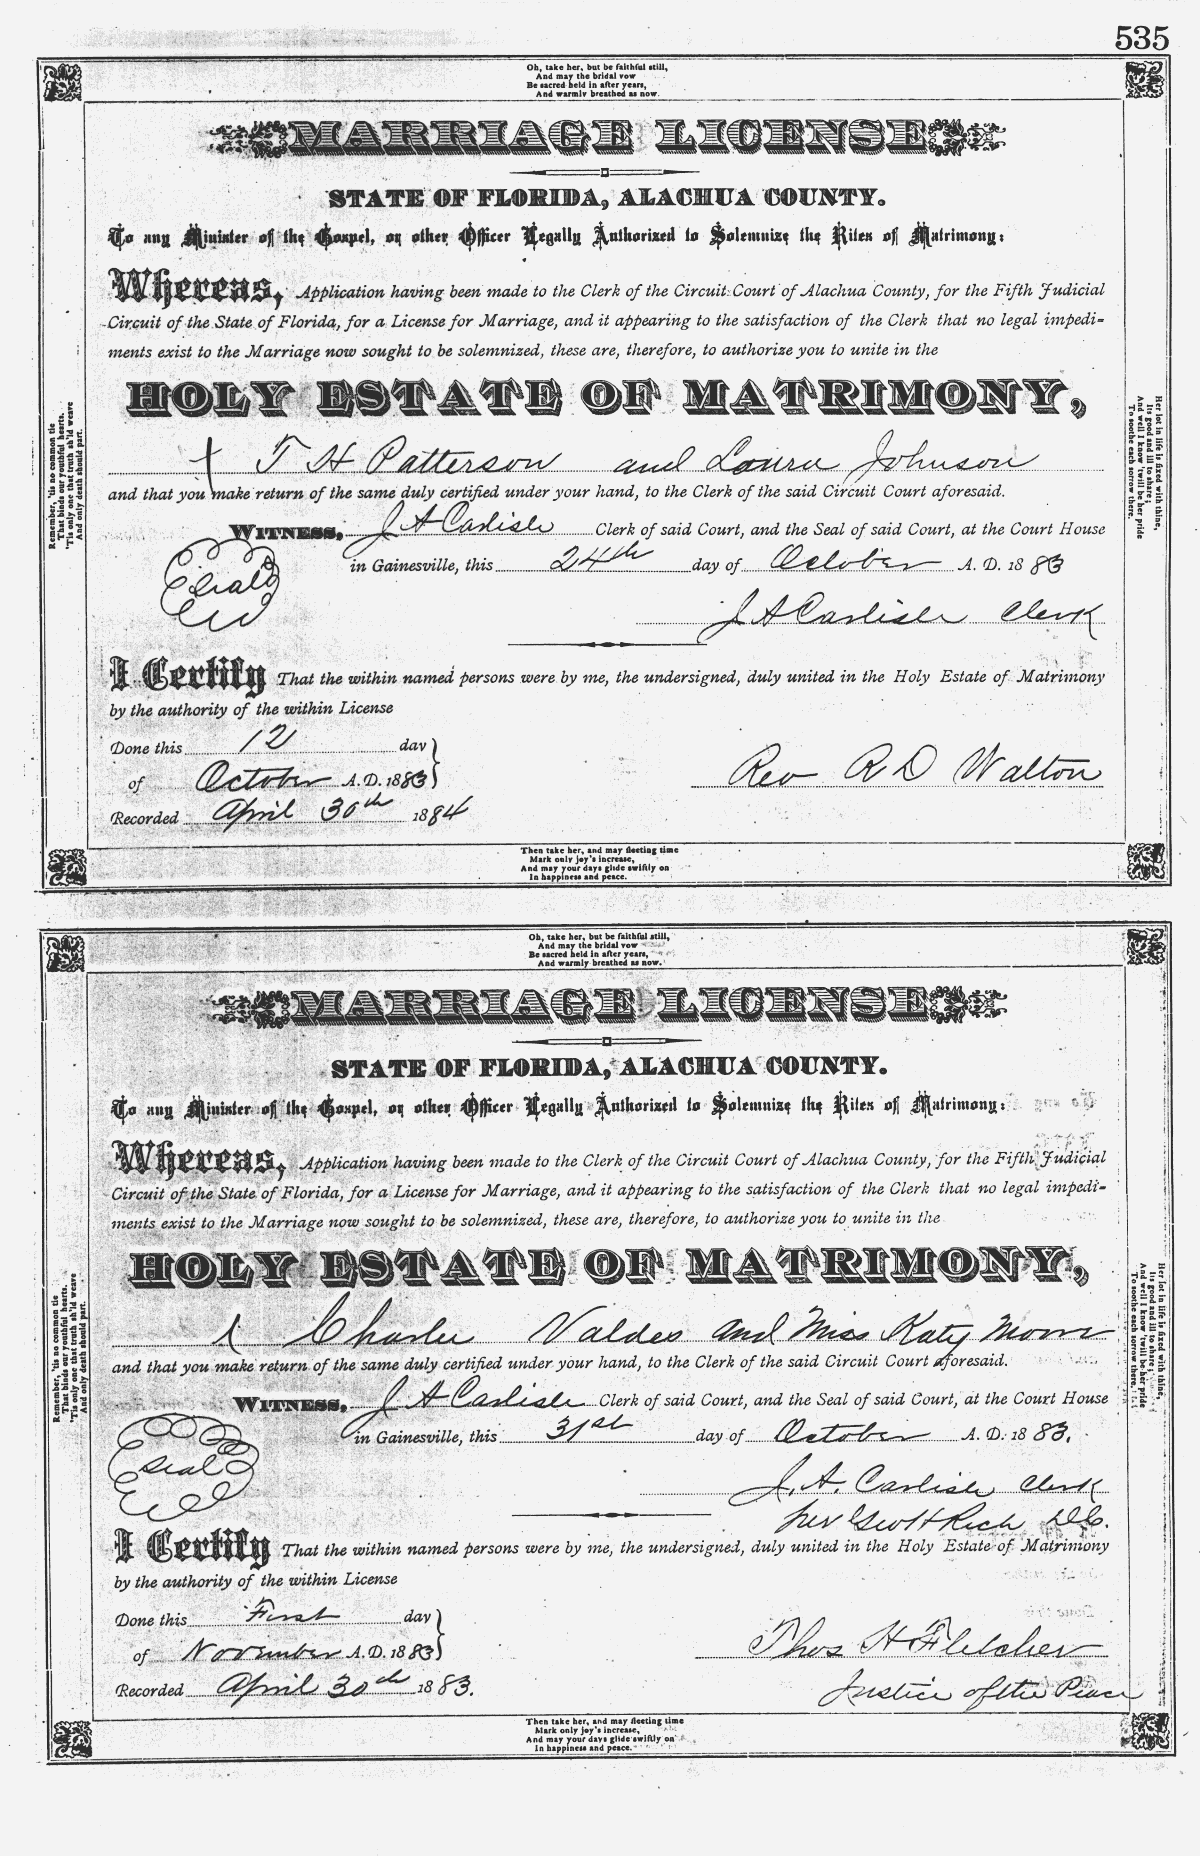 535
Oh, take her, but be faithful still,
And may the bridal vow
Be sacred held in after years,
And warmly breathed as now.
MARRIAGE LICENSE
STATE OF FLORIDA, ALACHUA COUNTY.
To any Minister of the Gospel, or other Officer Legally Authorized to Solemnize the Rites of Matrimony:
Whereas, Application having been made to the Clerk of the Circuit Court of Alachua County, for the Fifth Judicial
Circuit of the State of Florida, for a License for Marriage, and it appearing to the satisfaction of the Clerk that no legal impedi-
ments exist to the Marriage now sought to be solemnized, these are, therefore, to authorize you to unite in the
HOLY ESTATE OF MATRIMONY,
T H Patterson and Laura Johnson
and that you make return of the same duly certified under your hand, to the Clerk of the said Circuit Court aforesaid.
WITNESS, J A Carlisle Clerk of said Court, and the Seal of said Court, at the Court House
in Gainesville, this 24th day of October A. D. 1883
J A Carlisle Clerk
I Certify That the within named persons were by me, the undersigned, duly united in the Holy Estate of Matrimony
by the authority of the within License
Done this 12 day
of October A. D. 1883
Rev R D Walton
Recorded April 30th 1884
Remember, 'tis no common tie
That binds our youthful hearts.
'Tis only one that truth sh'ld weave
And only death should part.
Her lot in life is fixed with thine,
Its good and ill to share;
And well I know 'twill be her pride
To soothe each sorrow there.
Then take her, and may fleeting time
Mark only joy's increase,
And may your days glide swiftly on
In happiness and peace.
Oh, take her, but be faithful still,
And may the bridal vow
Be sacred held in after years,
And warmly breathed as now.
MARRIAGE LICENSE
STATE OF FLORIDA, ALACHUA COUNTY.
To any Minister of the Gospel, or other Officer Legally Authorized to Solemnize the Rites of Matrimony:
Whereas, Application having been made to the Clerk of the Circuit Court of Alachua County, for the Fifth Judicial
Circuit of the State of Florida, for a License for Marriage, and it appearing to the satisfaction of the Clerk that no legal impedi-
ments exist to the Marriage now sought to be solemnized, these are, therefore, to authorize you to unite in the
HOLY ESTATE OF MATRIMONY,
Charlie Valdes and Miss Katy Moore
and that you make return of the same duly certified under your hand, to the Clerk of the said Circuit Court aforesaid.
WITNESS, J A Carlisle Clerk of said Court, and the Seal of said Court, at the Court House
in Gainesville, this 31st day of October A. D. 1883.
Seal
J. A. Carlisle Clerk
per Geo H Rich D.C.
I Certify That the within named persons were by me, the undersigned, duly united in the Holy Estate of Matrimony
by the authority of the within License
Done this First day
of November A. D. 1883
Thos H Fletcher
Recorded April 30th 1883.
Justice of the Peace
Remember, 'tis no common tie
That binds our youthful hearts.
'Tis only one that truth sh'ld weave
And only death should part.
Her lot in life is fixed with thine,
Its good and ill to share;
And well I know 'twill be her pride
To soothe each sorrow there.
Then take her, and may fleeting time
Mark only joy's increase,
And may your days glide swiftly on
In happiness and peace.